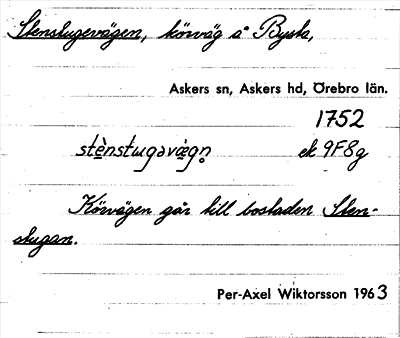 Stenstugevägen, körväg å Bysta,
Askers sn, Askers hd, Örebro län.
1752
stènstugəvæ̀gn̥ ek 9F8g
Körvägen går till bostaden Sten-
stugan.
Per-Axel Wiktorsson 1963